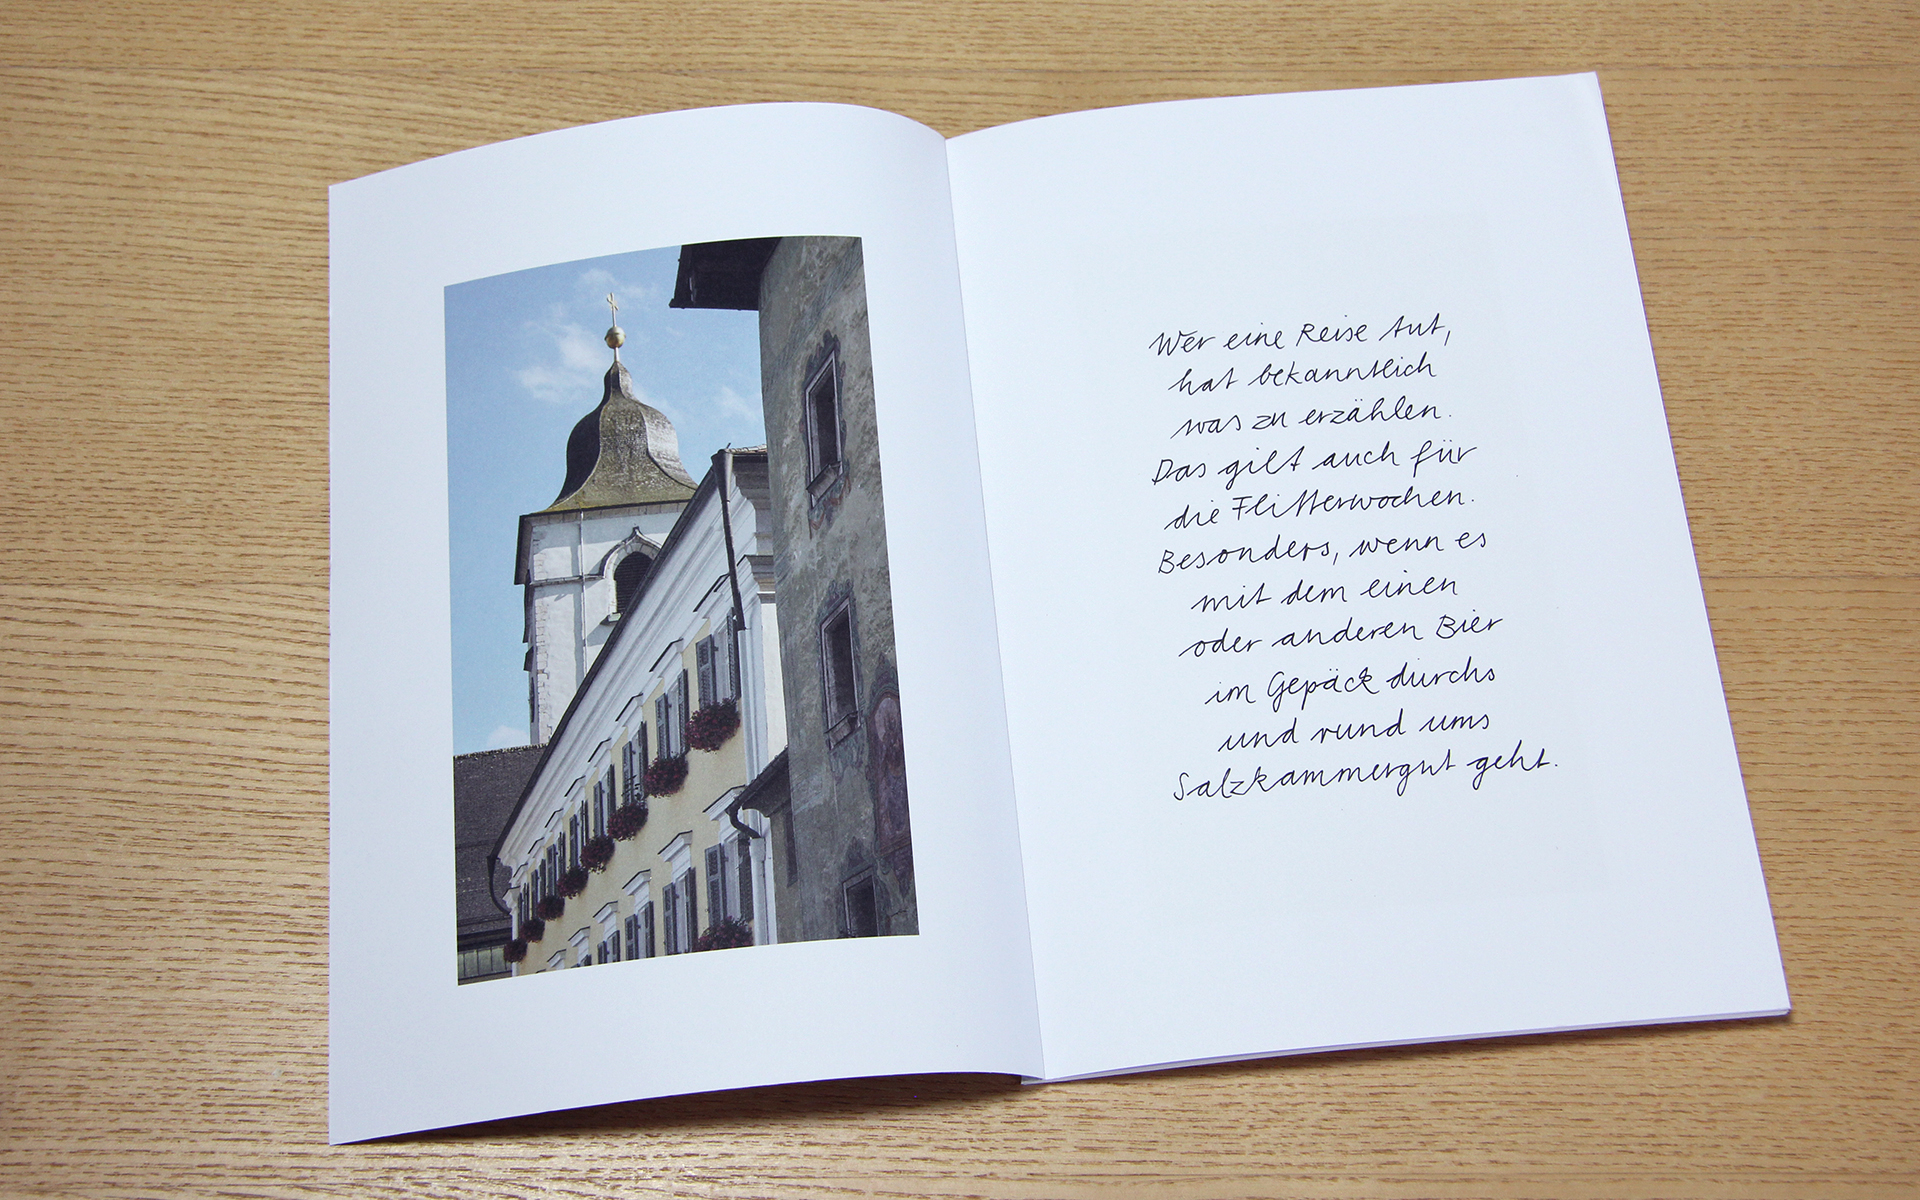 Wer eine Reise tut,
hat bekanntlich
was zu erzählen.
Das gilt auch für
die Flitterwochen.
Besonders, wenn es
mit dem einen
oder anderen Bier
im Gepäck durchs
und rund ums
Salzkammergut geht.